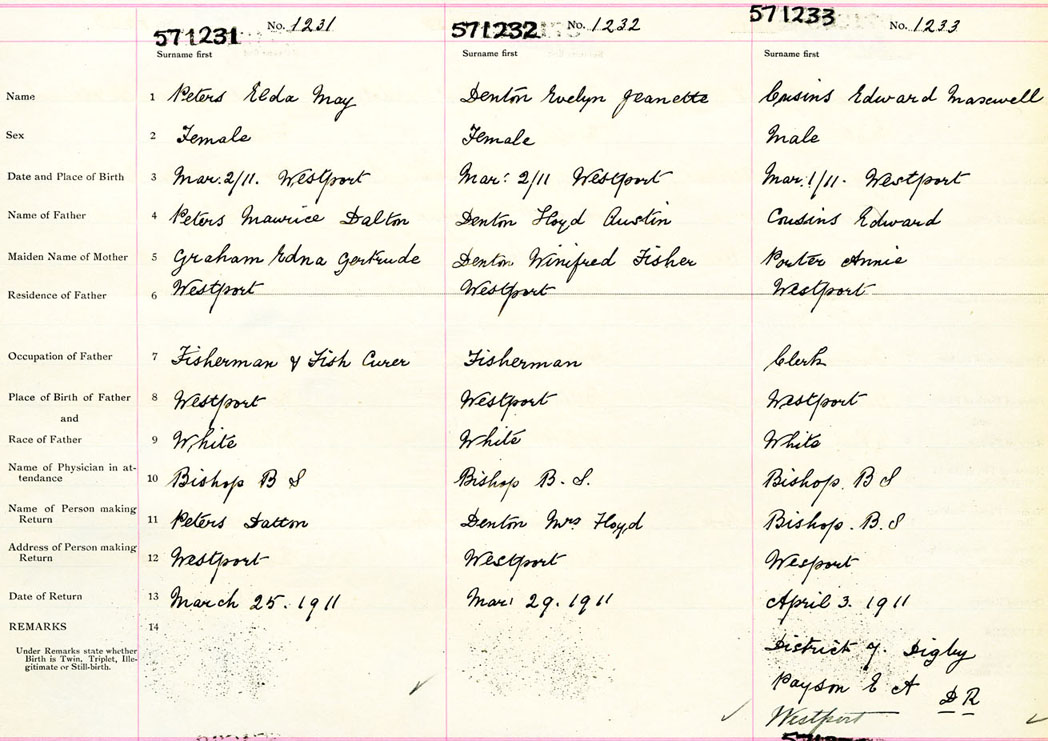 571231 No. 1231 571232 No. 1232 571233 No. 1233
Surname first Surname first Surname first
Name 1 Peters Elda May Denton Evelyn Jeanette Cusins Edward Maxwell
Sex 2 Female Female Male
Date and Place of Birth 3 Mar. 2/11. Westport Mar: 2/11 Westport Mar. 1/11. Westport
Name of Father 4 Peters Maurice Dalton Denton Floyd Austin Cousins Edward
Maiden Name of Mother 5 Graham Edna Gertrude Denton Winifred Fisher Porter Annie
Residence of Father 6 Westport Westport Westport
Occupation of Father 7 Fisherman & Fish Curer Fisherman Clerk
Place of Birth of Father 8 Westport Westport Westport
and
Race of Father 9 White White White
Name of Physician in at-
tendance 10 Bishop B S Bishop B. S. Bishop. B S
Name of Person making
Return 11 Peters Dalton Denton Mrs Floyd Bishop. B. S
Address of Person making
Return 12 Westport Westport Wesport
Date of Return 13 March 25. 1911 Mar: 29. 1911 April 3. 1911
REMARKS 14
Under Remarks state whether
Birth is Twin, Triplet, Ille-
gitimate or Still-birth.
District of Digby
Payson E A D R
Westport